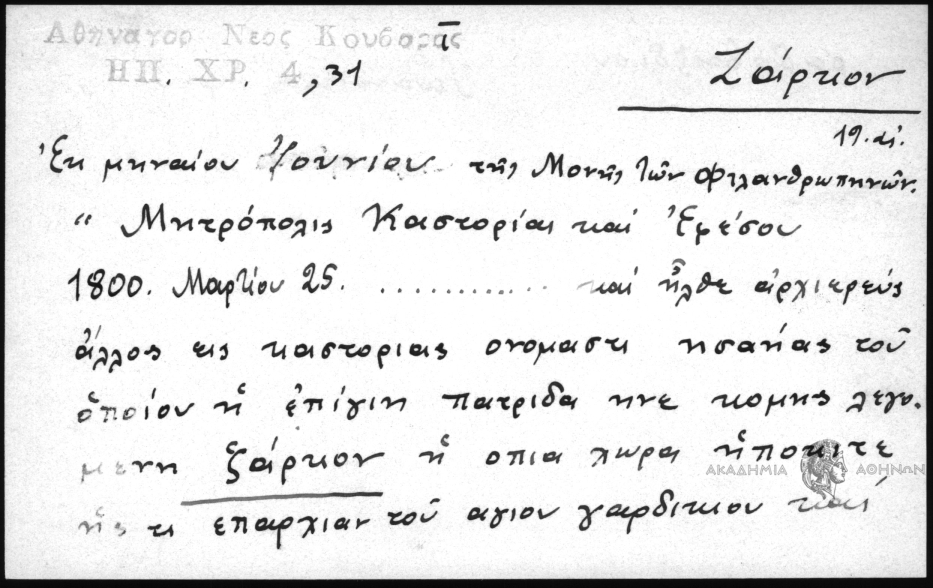 Αθηναγορ Νεος Κουβαρᾶς
ΗΠ. ΧΡ. 4, 31
Ζάρκον
19. αἰ.
Ἐκ μηναίου Ἰουνίου τῆς Μονῆς τῶν Φιλανθρωπηνῶν.
" Μητρόπολις Καστορίας καὶ Ἐφέσου
1800. Μαρτίου 25. ............ καὶ ἦλθε ἀρχιερεύς
ἄλλος εις καστοριας ονομαστι ησαήας τοῦ
ὁποίου ἡ ἐπίγιη πατριδα ηνε κομης λεγο-
μενη ζάρκον ἡ οπια χωρα ἡποκιτε
ἡς τι επαρχιαν τοῦ αγιου γαρδικιου καὶ
ΑΚΑΔΗΜΙΑ ΑΘΗΝΩΝ